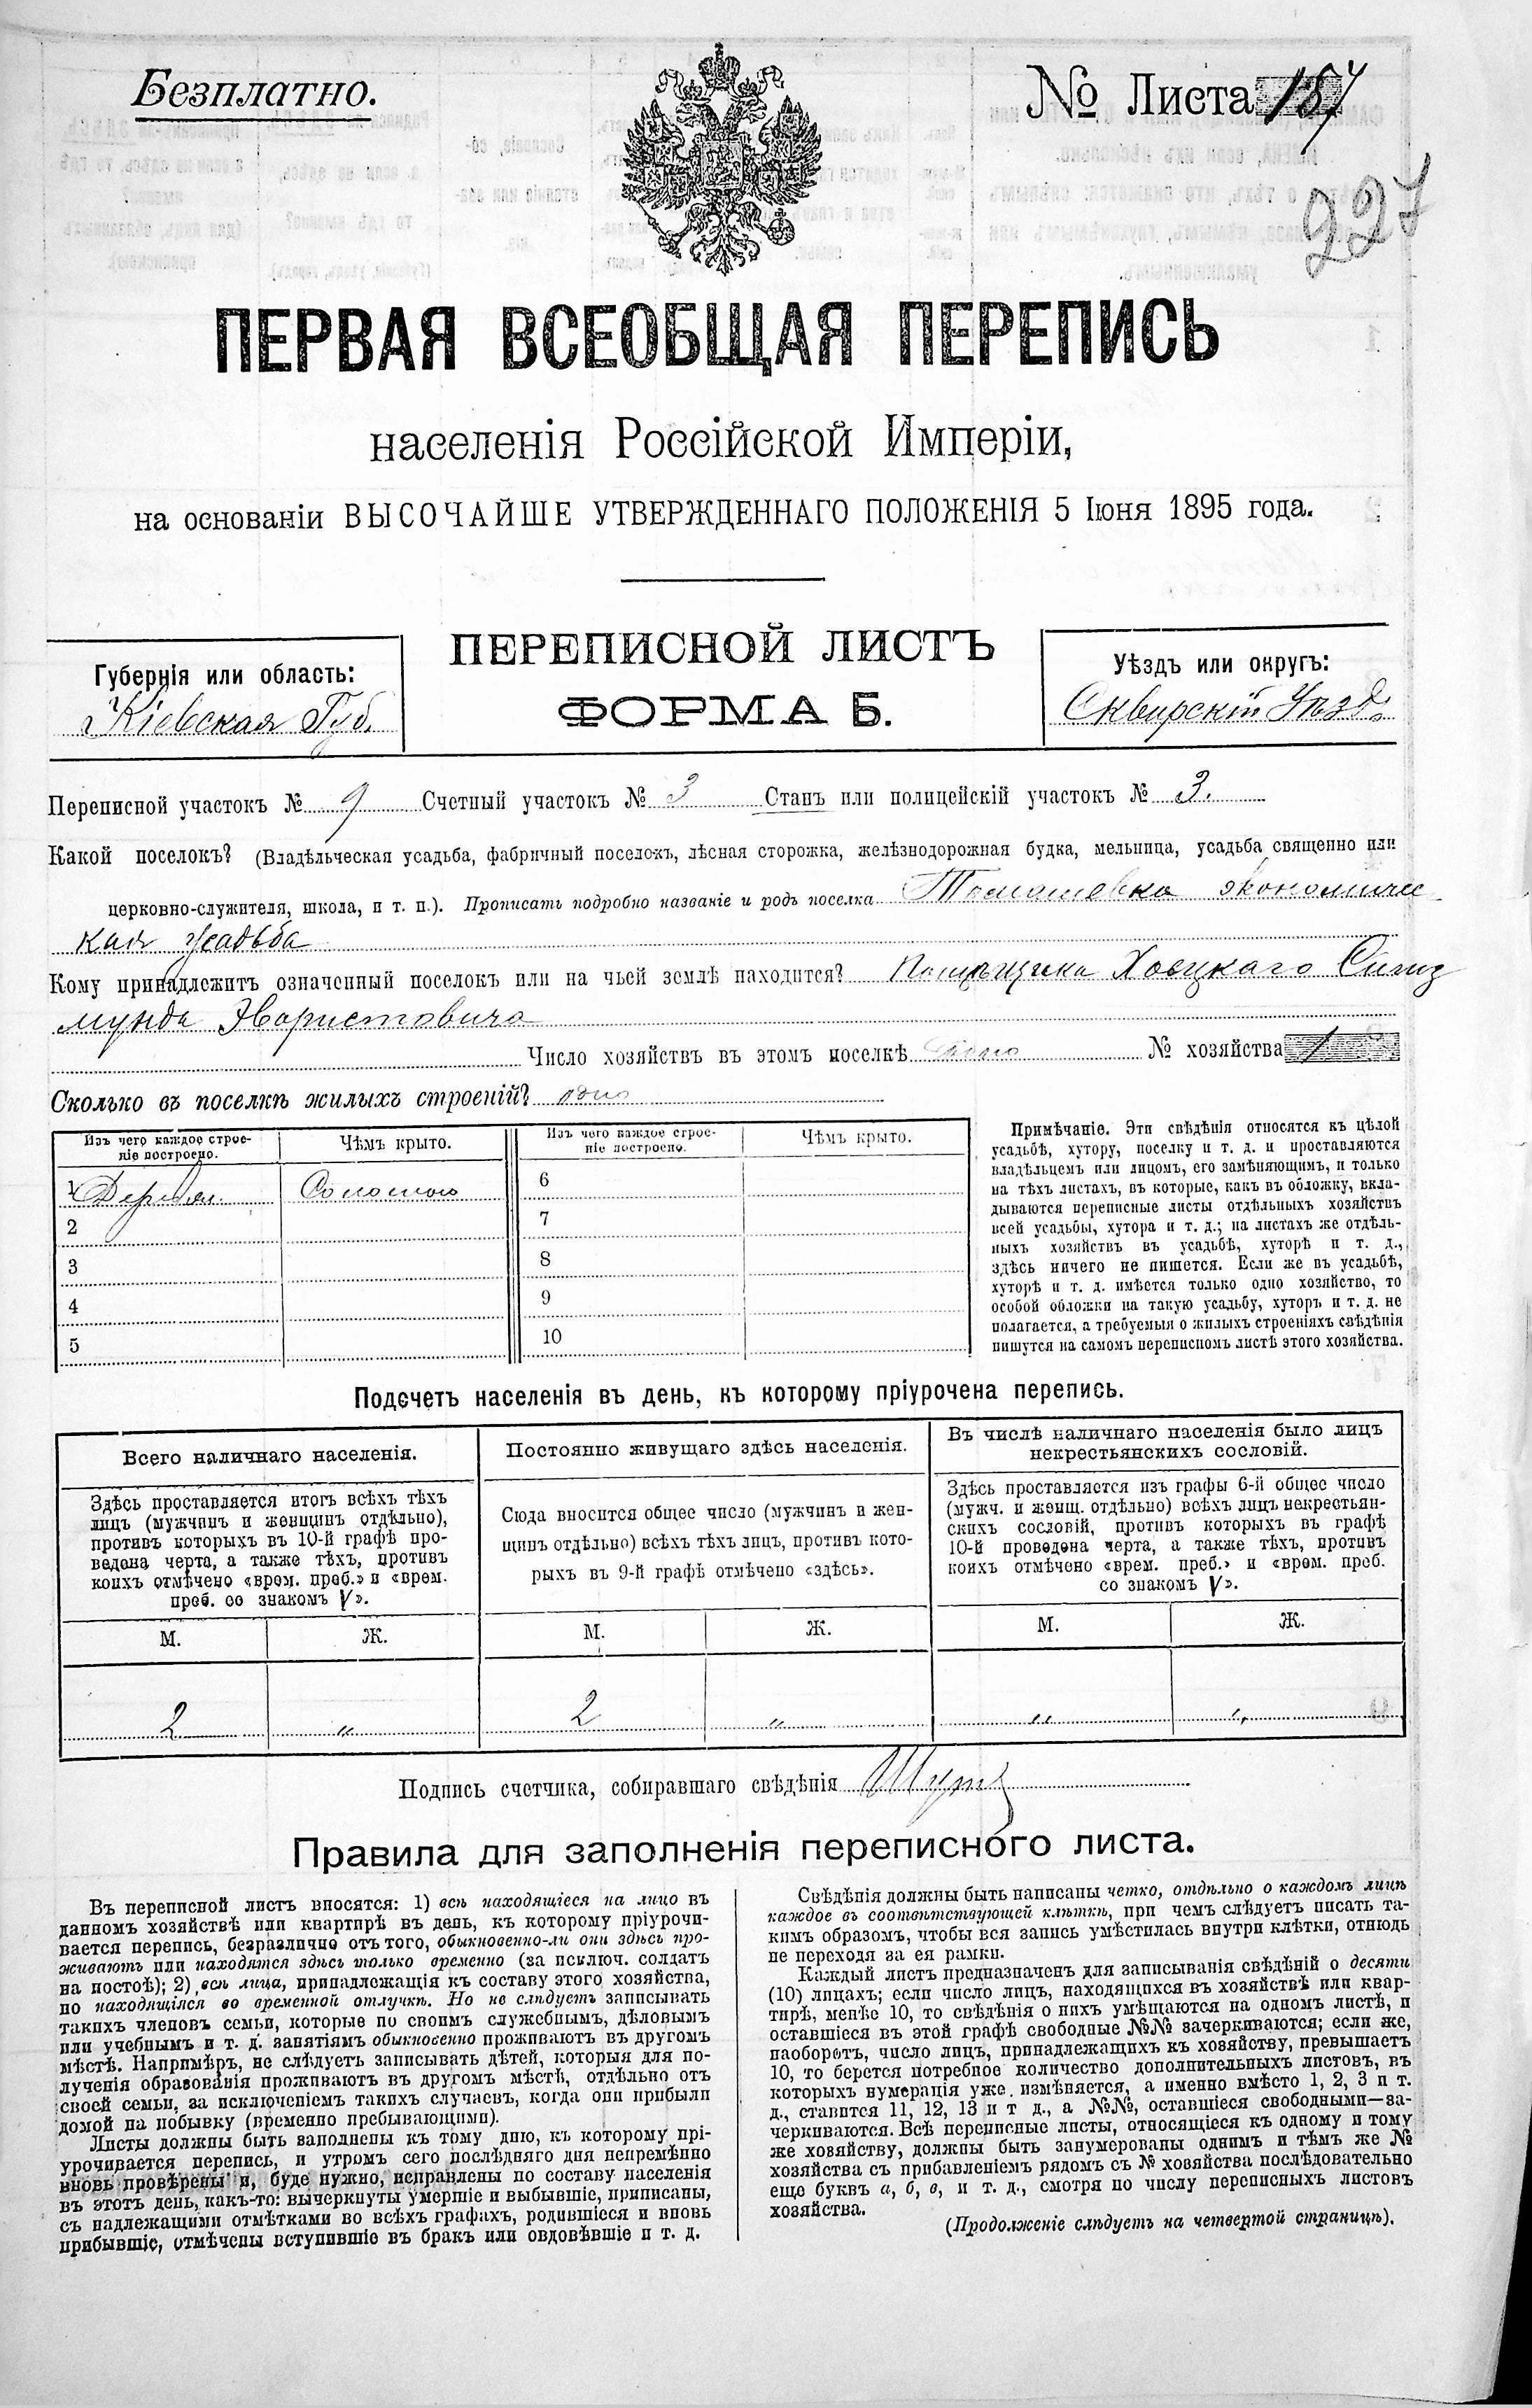 Безплатно.
№ Листа 157
227
ПЕРВАЯ ВСЕОБЩАЯ ПЕРЕПИСЬ
населенія Россійской Имперіи,
на основаніи ВЫСОЧАЙШЕ УТВЕРЖДЕННАГО ПОЛОЖЕНІЯ 5 Іюня 1895 года.
ПЕРЕПИСНОЙ ЛИСТЪ
ФОРМА Б.
Губернія или область:
Кіевская Губ.
Уѣздъ или округъ:
Сквирскій Уѣздъ
Переписной участокъ № 9 Счетный участокъ № 3 Станъ или полицейскій участокъ № 3.
Какой поселокъ? (Владѣльческая усадьба, фабричный поселокъ, лѣсная сторожка, желѣзнодорожная будка, мельница, усадьба священно или
церковно-служителя, школа, и т. п.). Прописать подробно названіе и родъ поселка Томашевка экономичес
кая усадьба
Кому принадлежитъ означенный поселокъ или на чьей землѣ находится? Помѣщика Хоецкаго Сигиз
мунда Эваристовича
Число хозяйствъ въ этомъ поселкѣ одно № хозяйства 1
Сколько въ поселкѣ жилыхъ строеній? одно
Изъ чего каждое строе-
ніе построено.
Чѣмъ крыто.
Изъ чего каждое строе-
ніе построено.
Чѣмъ крыто.
1 Деревян. Соломою
2
3
4
5
6
7
8
9
10
Примѣчаніе. Эти свѣдѣнія относятся къ цѣлой
усадьбѣ, хутору, поселку и т. д. и проставляются
владѣльцемъ или лицомъ, его замѣняющимъ, и только
на тѣхъ листахъ, въ которые, какъ въ обложку, вкла-
дываются переписные листы отдѣльныхъ хозяйствъ
всей усадьбы, хутора и т. д.; на листахъ же отдѣль-
ныхъ хозяйствъ въ усадьбѣ, хуторѣ и т. д.,
здѣсь ничего не пишется. Если же въ усадьбѣ,
хуторѣ и т. д. имѣется только одно хозяйство, то
особой обложки на такую усадьбу, хуторъ и т. д. не
полагается, а требуемыя о жилыхъ строеніяхъ свѣдѣнія
пишутся на самомъ переписномъ листѣ этого хозяйства.
Подсчетъ населенія въ день, къ которому пріурочена перепись.
Всего наличнаго населенія.
Здѣсь проставляется итогъ всѣхъ тѣхъ
лицъ (мужчинъ и женщинъ отдѣльно),
противъ которыхъ въ 10-й графѣ про-
ведена черта, а также тѣхъ, противъ
коихъ отмѣчено «врем. преб.» и «врем.
преб. со знакомъ V».
Постоянно живущаго здѣсь населенія.
Сюда вносится общее число (мужчинъ и жен-
щинъ отдѣльно) всѣхъ тѣхъ лицъ, противъ кото-
рыхъ въ 9-й графѣ отмѣчено «здѣсь».
Въ числѣ наличнаго населенія было лицъ
некрестьянскихъ сословій.
Здѣсь проставляется изъ графы 6-й общее число
(мужч. и женщ. отдѣльно) всѣхъ лицъ некрестьян-
скихъ сословій, противъ которыхъ въ графѣ
10-й проведена черта, а также тѣхъ, противъ
коихъ отмѣчено «врем. преб.» и «врем. преб.
со знакомъ V».
М. Ж. М. Ж. М. Ж.
2 " 2 " " "
Подпись счетчика, собиравшаго свѣдѣнія
Правила для заполненія переписного листа.
Въ переписной листъ вносятся: 1) всѣ находящіеся на лицо въ
данномъ хозяйствѣ или квартирѣ въ день, къ которому пріурочи-
вается перепись, безразлично отъ того, обыкновенно-ли они здѣсь про-
живаютъ или находятся здѣсь только временно (за исключ. солдатъ
на постоѣ); 2) всѣ лица, принадлежащія къ составу этого хозяйства,
но находящіяся во временной отлучкѣ. Но не слѣдуетъ записывать
такихъ членовъ семьи, которые по своимъ служебнымъ, дѣловымъ
или учебнымъ и т. д. занятіямъ обыкновенно проживаютъ въ другомъ
мѣстѣ. Напримѣръ, не слѣдуетъ записывать дѣтей, которыя для по-
лученія образованія проживаютъ въ другомъ мѣстѣ, отдѣльно отъ
своей семьи, за исключеніемъ такихъ случаевъ, когда они прибыли
домой на побывку (временно пребывающими).
Листы должны быть заполнены къ тому дню, къ которому прі-
урочивается перепись, и утромъ сего послѣдняго дня непремѣнно
вновь провѣрены и, буде нужно, исправлены по составу населенія
въ этотъ день, какъ-то: вычеркнуты умершіе и выбывшіе, приписаны,
съ надлежащими отмѣтками во всѣхъ графахъ, родившіеся и вновь
прибывшіе, отмѣчены вступившіе въ бракъ или овдовѣвшіе и т. д.
Свѣдѣнія должны быть написаны четко, отдѣльно о каждомъ лицѣ
каждое въ соотвѣтствующей клѣткѣ, при чемъ слѣдуетъ писать та-
кимъ образомъ, чтобы вся запись умѣстилась внутри клѣтки, отнюдь
не переходя за ея рамки.
Каждый листъ предназначенъ для записыванія свѣдѣній о десяти
(10) лицахъ; если число лицъ, находящихся въ хозяйствѣ или квар-
тирѣ, менѣе 10, то свѣдѣнія о нихъ умѣщаются на одномъ листѣ, и
оставшіеся въ этой графѣ свободные №№ зачеркиваются; если же,
наоборотъ, число лицъ, принадлежащихъ къ хозяйству, превышаетъ
10, то берется потребное количество дополнительныхъ листовъ, въ
которыхъ нумерація уже измѣняется, а именно вмѣсто 1, 2, 3 и т.
д., ставится 11, 12, 13 и т д., а №№, оставшіеся свободными—за-
черкиваются. Всѣ переписные листы, относящіеся къ одному и тому
же хозяйству, должны быть занумерованы однимъ и тѣмъ же №
хозяйства съ прибавленіемъ рядомъ съ № хозяйства послѣдовательно
еще буквъ а, б, в, и т. д., смотря по числу переписныхъ листовъ
хозяйства.
(Продолженіе слѣдуетъ на четвертой страницѣ).